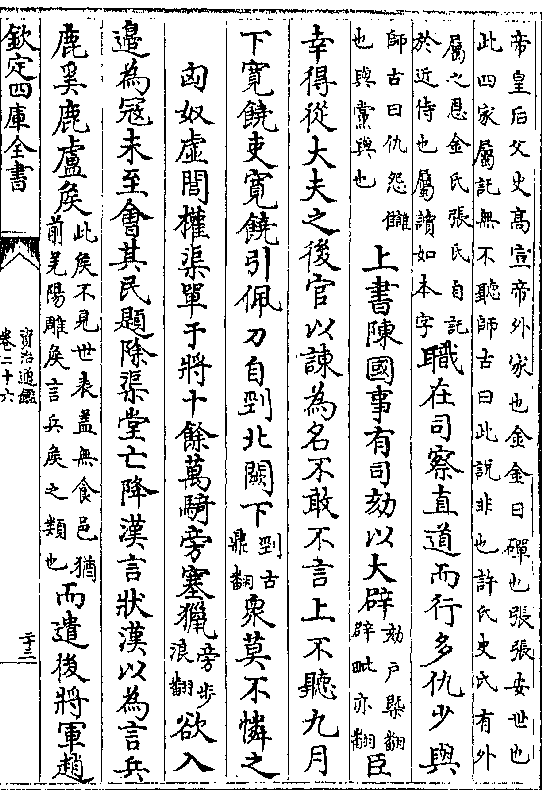 帝皇后父史高宣帝外家也金金日磾也張張安世也
此四家屬託無不聽師古曰此說非也許氏史氏有外
屬之恩金氏張氏自託
於近侍也屬讀如本字
職在司察直道而行多仇少與
師古曰仇怨讎
也與黨與也
上書陳國事有司劾以大辟
劾戶槩翻
辟毗亦翻
臣
幸得從大夫之後官以諫為名不敢不言上不聽九月
下寛饒吏寛饒引佩刀自剄北闕下
剄古
鼎翻
衆莫不憐之
匈奴虛閭權渠單于將十餘萬騎旁塞獵
旁步
浪翻
欲入
邉為冦未至會其民題除渠堂亡降漢言狀漢以為言兵
鹿奚鹿盧矦
此矦不見世表蓋無食邑猶
前羌陽雕矦言兵矦之類也
而遣後將軍趙
欽定四庫全書
資治通鑑
卷二十六
二十三